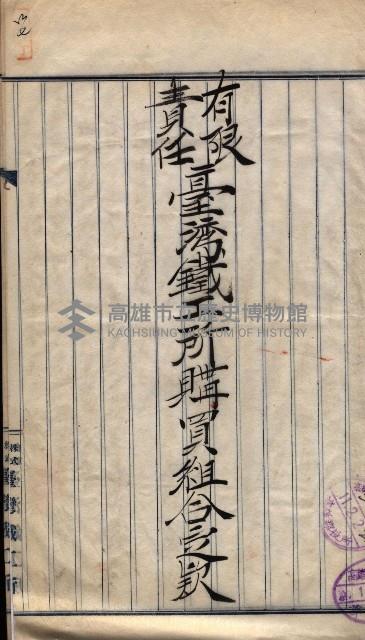 有限
責任
臺灣鐵工所購買組合定款
高雄市立歷史博物館
KAOHSIUNG MUSEUM OF HISTORY
株式
會社
臺灣鐵工所